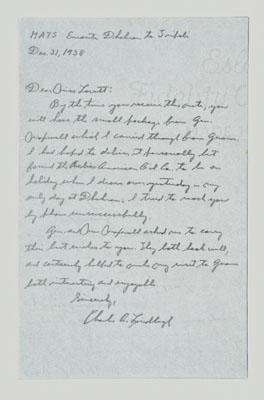 MATS Enroute Dhahran to Tripoli
Dec. 31, 1958
Dear Miss
By the time you receive this note, you
will have the small package from Gen.
which I carried through from Guam.
I had hoped to deliver it personally but
found the Arabian American Oil Co. to be on
holiday when I drove over yesterday — my
only day at Dhahran. I tried to reach you
by phone unsuccessfully.
Gen. and Mrs. asked me to carry
their best wishes to you. They both look well,
and certainly helped to make my visit to Guam
both interesting and enjoyable.
Sincerely,
Charles A. Lindbergh